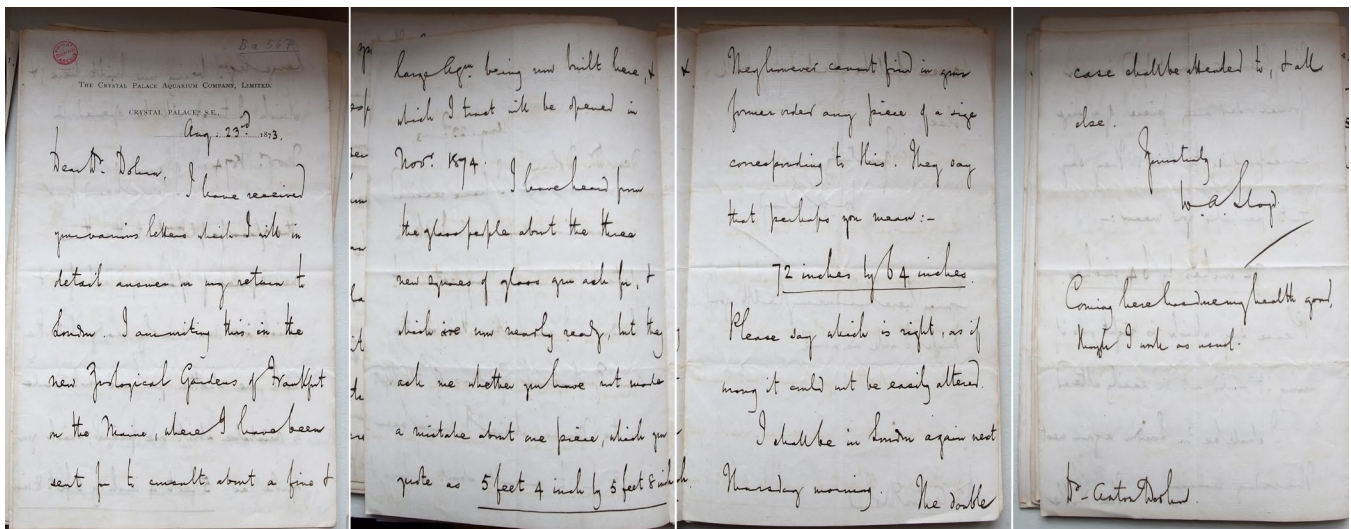 Ba 567
THE CRYSTAL PALACE AQUARIUM COMPANY, LIMITED.
CRYSTAL PALACE, S.E.,
Aug. 23rd 1873.
Dear Dr. Dohrn,
I have received
your various letters which I will in
detail answer on my return to
London. I am writing this in the
new Zoological Gardens of Frankfurt
on the Maine, where I have been
sent for to consult about a fine &
large Aqm. being now built here, &
which I trust will be opened in
Novr. 1874.
I have heard from
the glass people about the three
new squares of glass you ask for, &
which are now nearly ready, but they
ask me whether you have not made
a mistake about one piece, which you
quote as 5 feet 4 inch by 5 feet 8 inch.
They however cannot find in your
former order any piece of a size
corresponding to this. They say
that perhaps you mean:-
72 inches by 64 inches.
Please say which is right, as if
wrong it could not be easily altered.
I shall be in London again next
Thursday morning. The double
case shall be attended to, & all
else.
Yours truly,
W. A. Lloyd.
Coming here has done my health good,
though I work as usual.
Dr. Anton Dohrn.